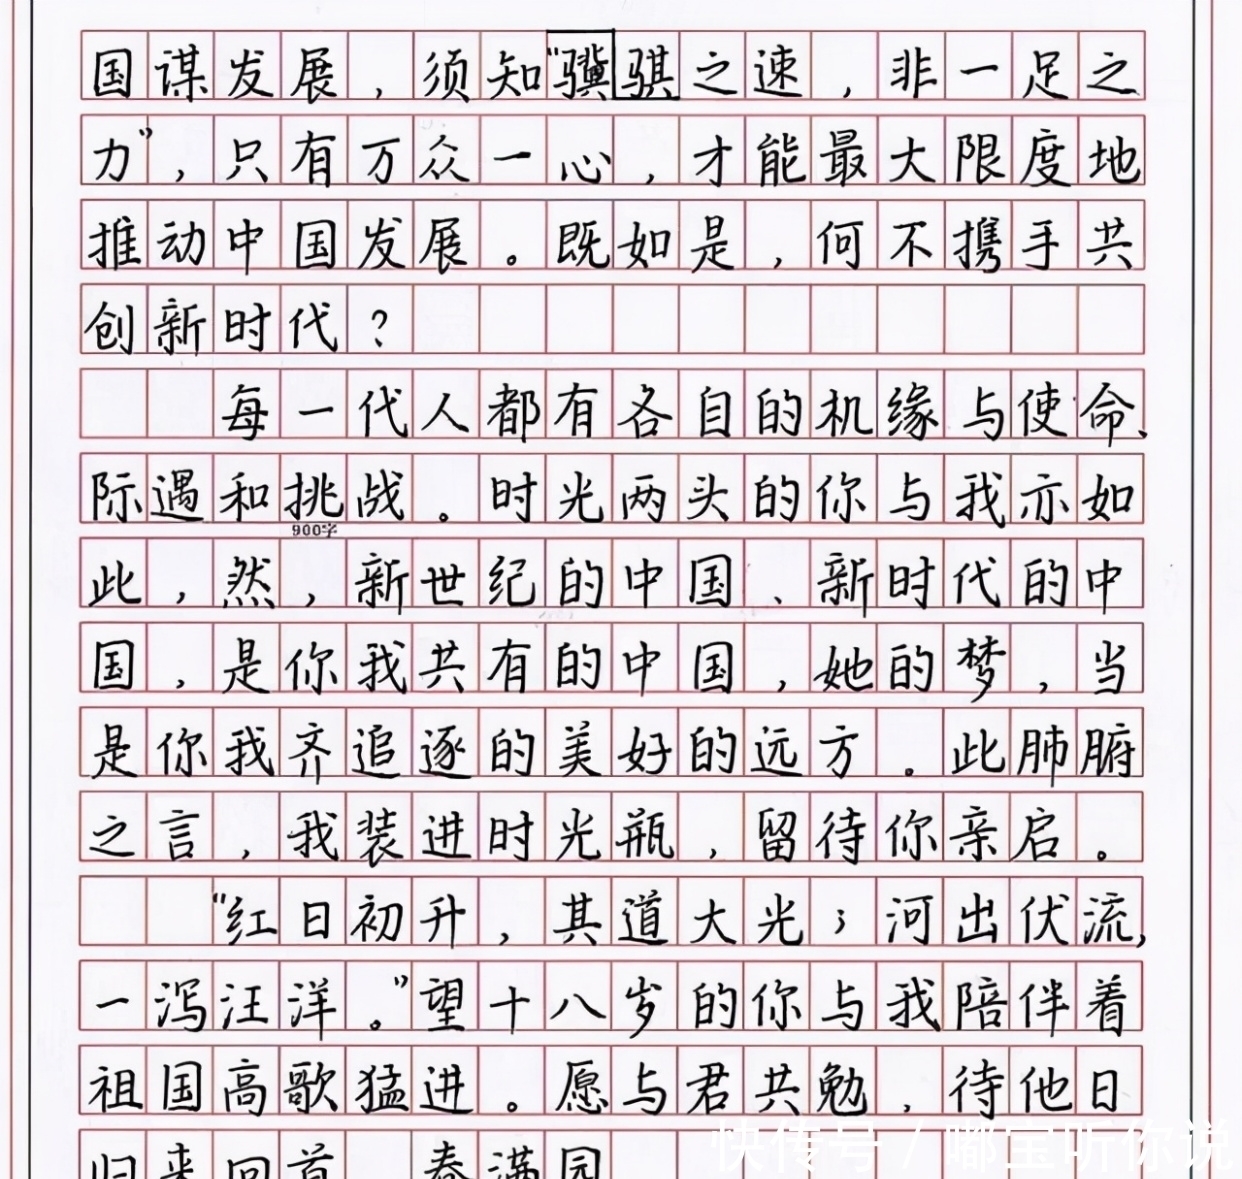 国谋发展，须知“骥骐之速，非一足之
力”，只有万众一心，才能最大限度地
推动中国发展。既如是，何不携手共
创新时代？
每一代人都有各自的机缘与使命、
际遇和挑战。时光两头的你与我亦如
900字
此，然，新世纪的中国、新时代的中
国，是你我共有的中国，她的梦，当
是你我齐追逐的美好的远方。此肺腑
之言，我装进时光瓶，留待你亲启。
“红日初升，其道大光；河出伏流，
一泻汪洋。”望十八岁的你与我陪伴着
祖国高歌猛进。愿与君共勉，待他日
归来回首，春满园
快传号 / 嘟宝听你说